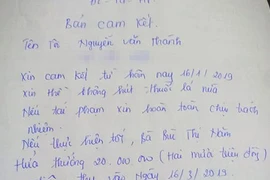 Bản cam kết.
Tên tôi Nguyễn Văn Thành
Xin cam kết từ hôm nay 16/1/2019
xin thề không hút thuốc lá nữa
Nếu tái phạm xin hoàn toàn chịu trách
nhiệm.
Nếu thực hiện tốt, Bà Bùi Thị Năm
thưởng 20.000.000 (Hai mươi triệu đồng)
vào ngày 16/3/2019.